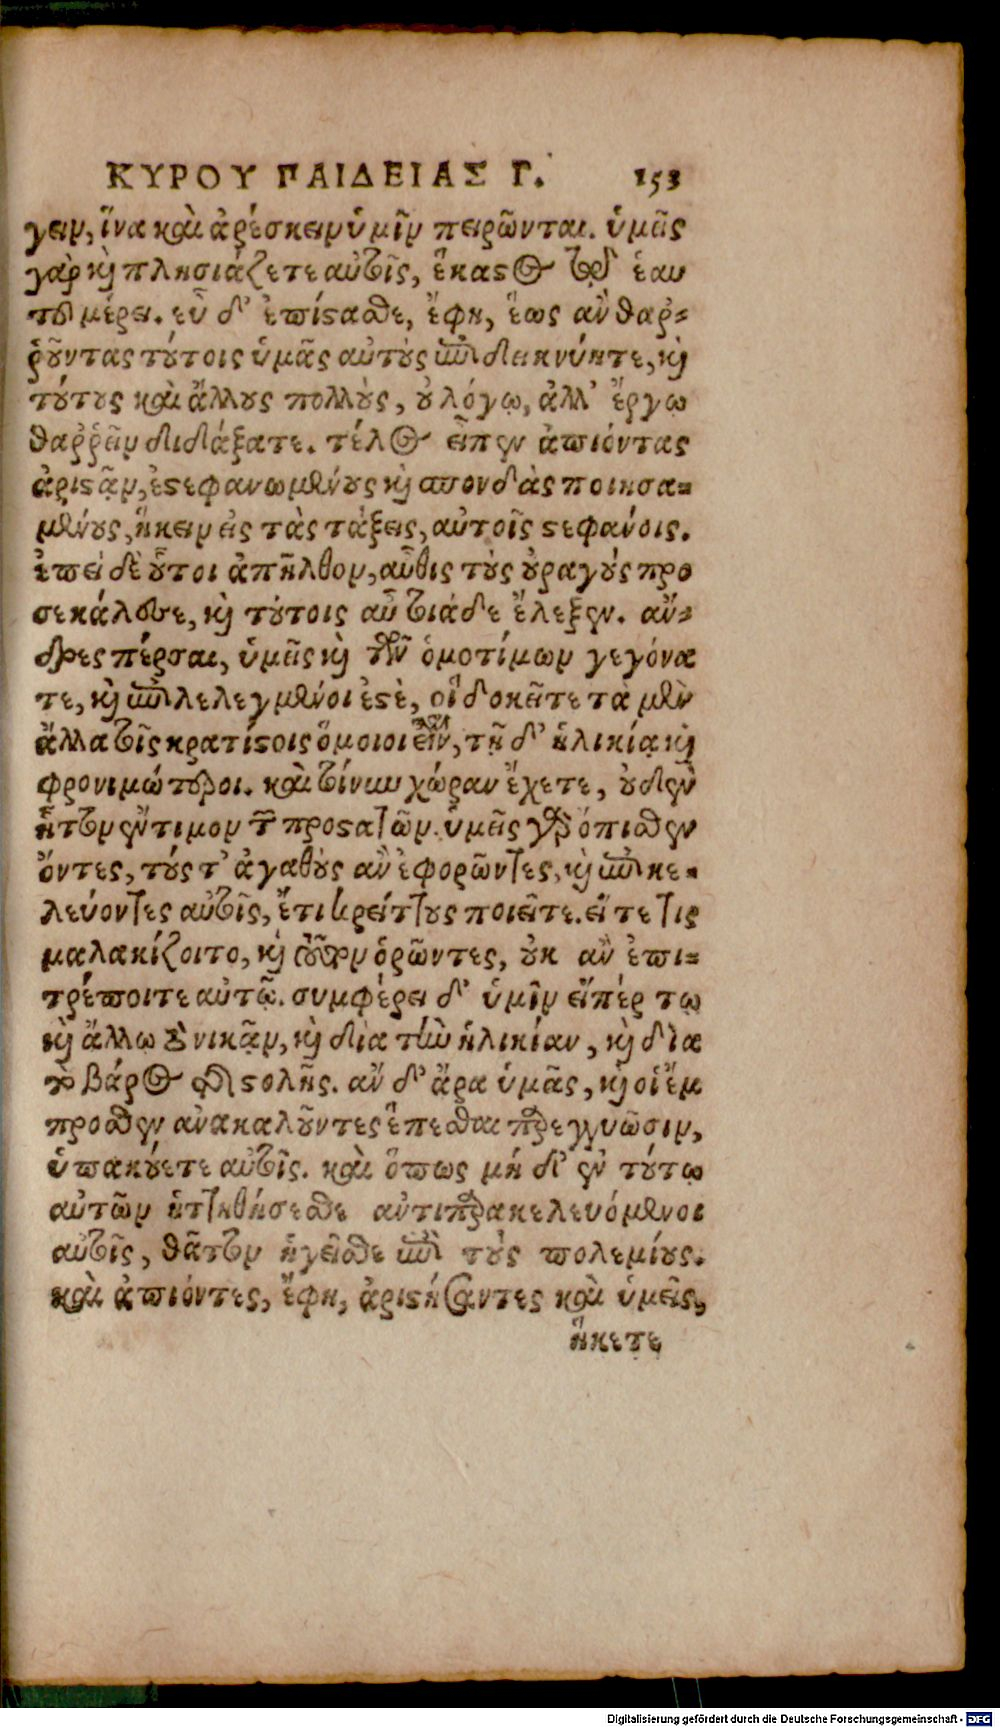 ΚΥΡΟΥ ΠΑΙΔΕΙΑΣ Γ. 153
γειν, ἵνα καὶ ἀρέσκειν ὑμῖν πειρῶνται. ὑμᾶς
γὰρ καὶ πλησιάζετε αὐτοῖς, ἕκαστος τῷ ἑαυ
τοῦ μέρει. εὖ δ' ἐπίστασθε, ἔφη, ἕως ἂν θαῤ-
ῥοῦντας τούτοις ὑμᾶς αὐτοὺς ἐπιδεικνύητε, καὶ
τούτους καὶ ἄλλους πολλοὺς, οὐ λόγῳ, ἀλλ' ἔργω
θαῤῥεῖν διδάξατε. τέλος εἶπεν ἀπιόντας
ἀριστᾷν, ἐστεφανωμένους καὶ σπονδὰς ποιησα-
μένους, ἥκειν εἰς τὰς τάξεις, αὐτοῖς στεφάνοις.
ἐπεὶ δὲ οὗτοι ἀπῆλθον, αὖθις τοὺς οὐραγοὺς προ
σεκάλεσε, καὶ τούτοις αὖ τοιάδε ἔλεξεν. ἄν-
δρες πέρσαι, ὑμεῖς καὶ τῶν ὁμοτίμων γεγόνα
τε, καὶ ἐπιλελεγμένοι ἐστὲ, οἳ δοκεῖτε τὰ μὲν
ἄλλα τοῖς κρατίστοις ὅμοιοι εἶναι, τῇ δ' ἡλικίᾳ καὶ
φρονιμώτεροι. καὶ τοίνυν χώραν ἔχετε, οὐδὲν
ἧττον ἔντιμον τῶν προστατῶν. ὑμεῖς γὰρ ὄπισθεν
ὄντες, τούς τ' ἀγαθοὺς ἂν ἐφορῶντες, καὶ ἐπικε-
λεύοντες αὐτοῖς, ἔτι κρείττους ποιεῖτε. εἴ τε τις
μαλακίζοιτο, καὶ τοῦτον ὁρῶντες, οὐκ ἂν ἐπι-
τρέποιτε αὐτῷ. συμφέρει δ' ὑμῖν εἴπέρ τῳ
καὶ ἄλλῳ τὸ νικᾷν, καὶ δια τὴν ἡλικίαν, καὶ δια
τὸ βάρος τῆς στολῆς. ἂν δ' ἄρα ὑμᾶς, καὶ οἱ ἔμ
προσθεν ἀνακαλοῦντες ἕπεσθαι παρεγγυῶσιν,
ὑπακούετε αὐτοῖς. καὶ ὅπως μή δ' ἐν τούτῳ
αὐτῶν ἡττηθήσεσθε ἀντιπαρακελευόμενοι
αὐτοῖς, θᾶττον ἡγεῖσθε ἐπὶ τοὺς πολεμίους.
καὶ ἀπιόντες, ἔφη, ἀριστήσαντες καὶ ὑμεῖς,
ἥκετε
Digitalisierung gefördert durch die Deutsche Forschungsgemeinschaft - DFG